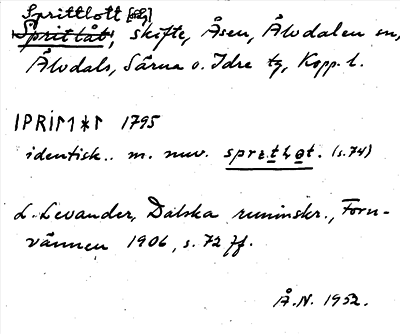 Sprittlott [sp],
Spritlåt, skifte, Åsen, Älvdalen sn,
Älvdals, Särna o. Idre tg, Kopp. l.
ᛁᚹᚱᛁᛚᛐᛡᛚ 1795
identisk.. m. nuv. sprɪtlɵt. (s.74)
L. Levander, Dalska runinskr., Forn-
vännen 1906, s. 72 ff.
Å.N. 1952.